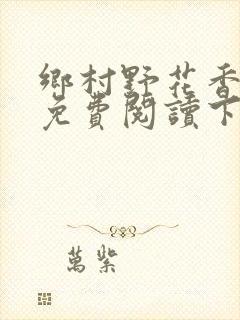 鄉村野花香
免費閱讀下
萬紫